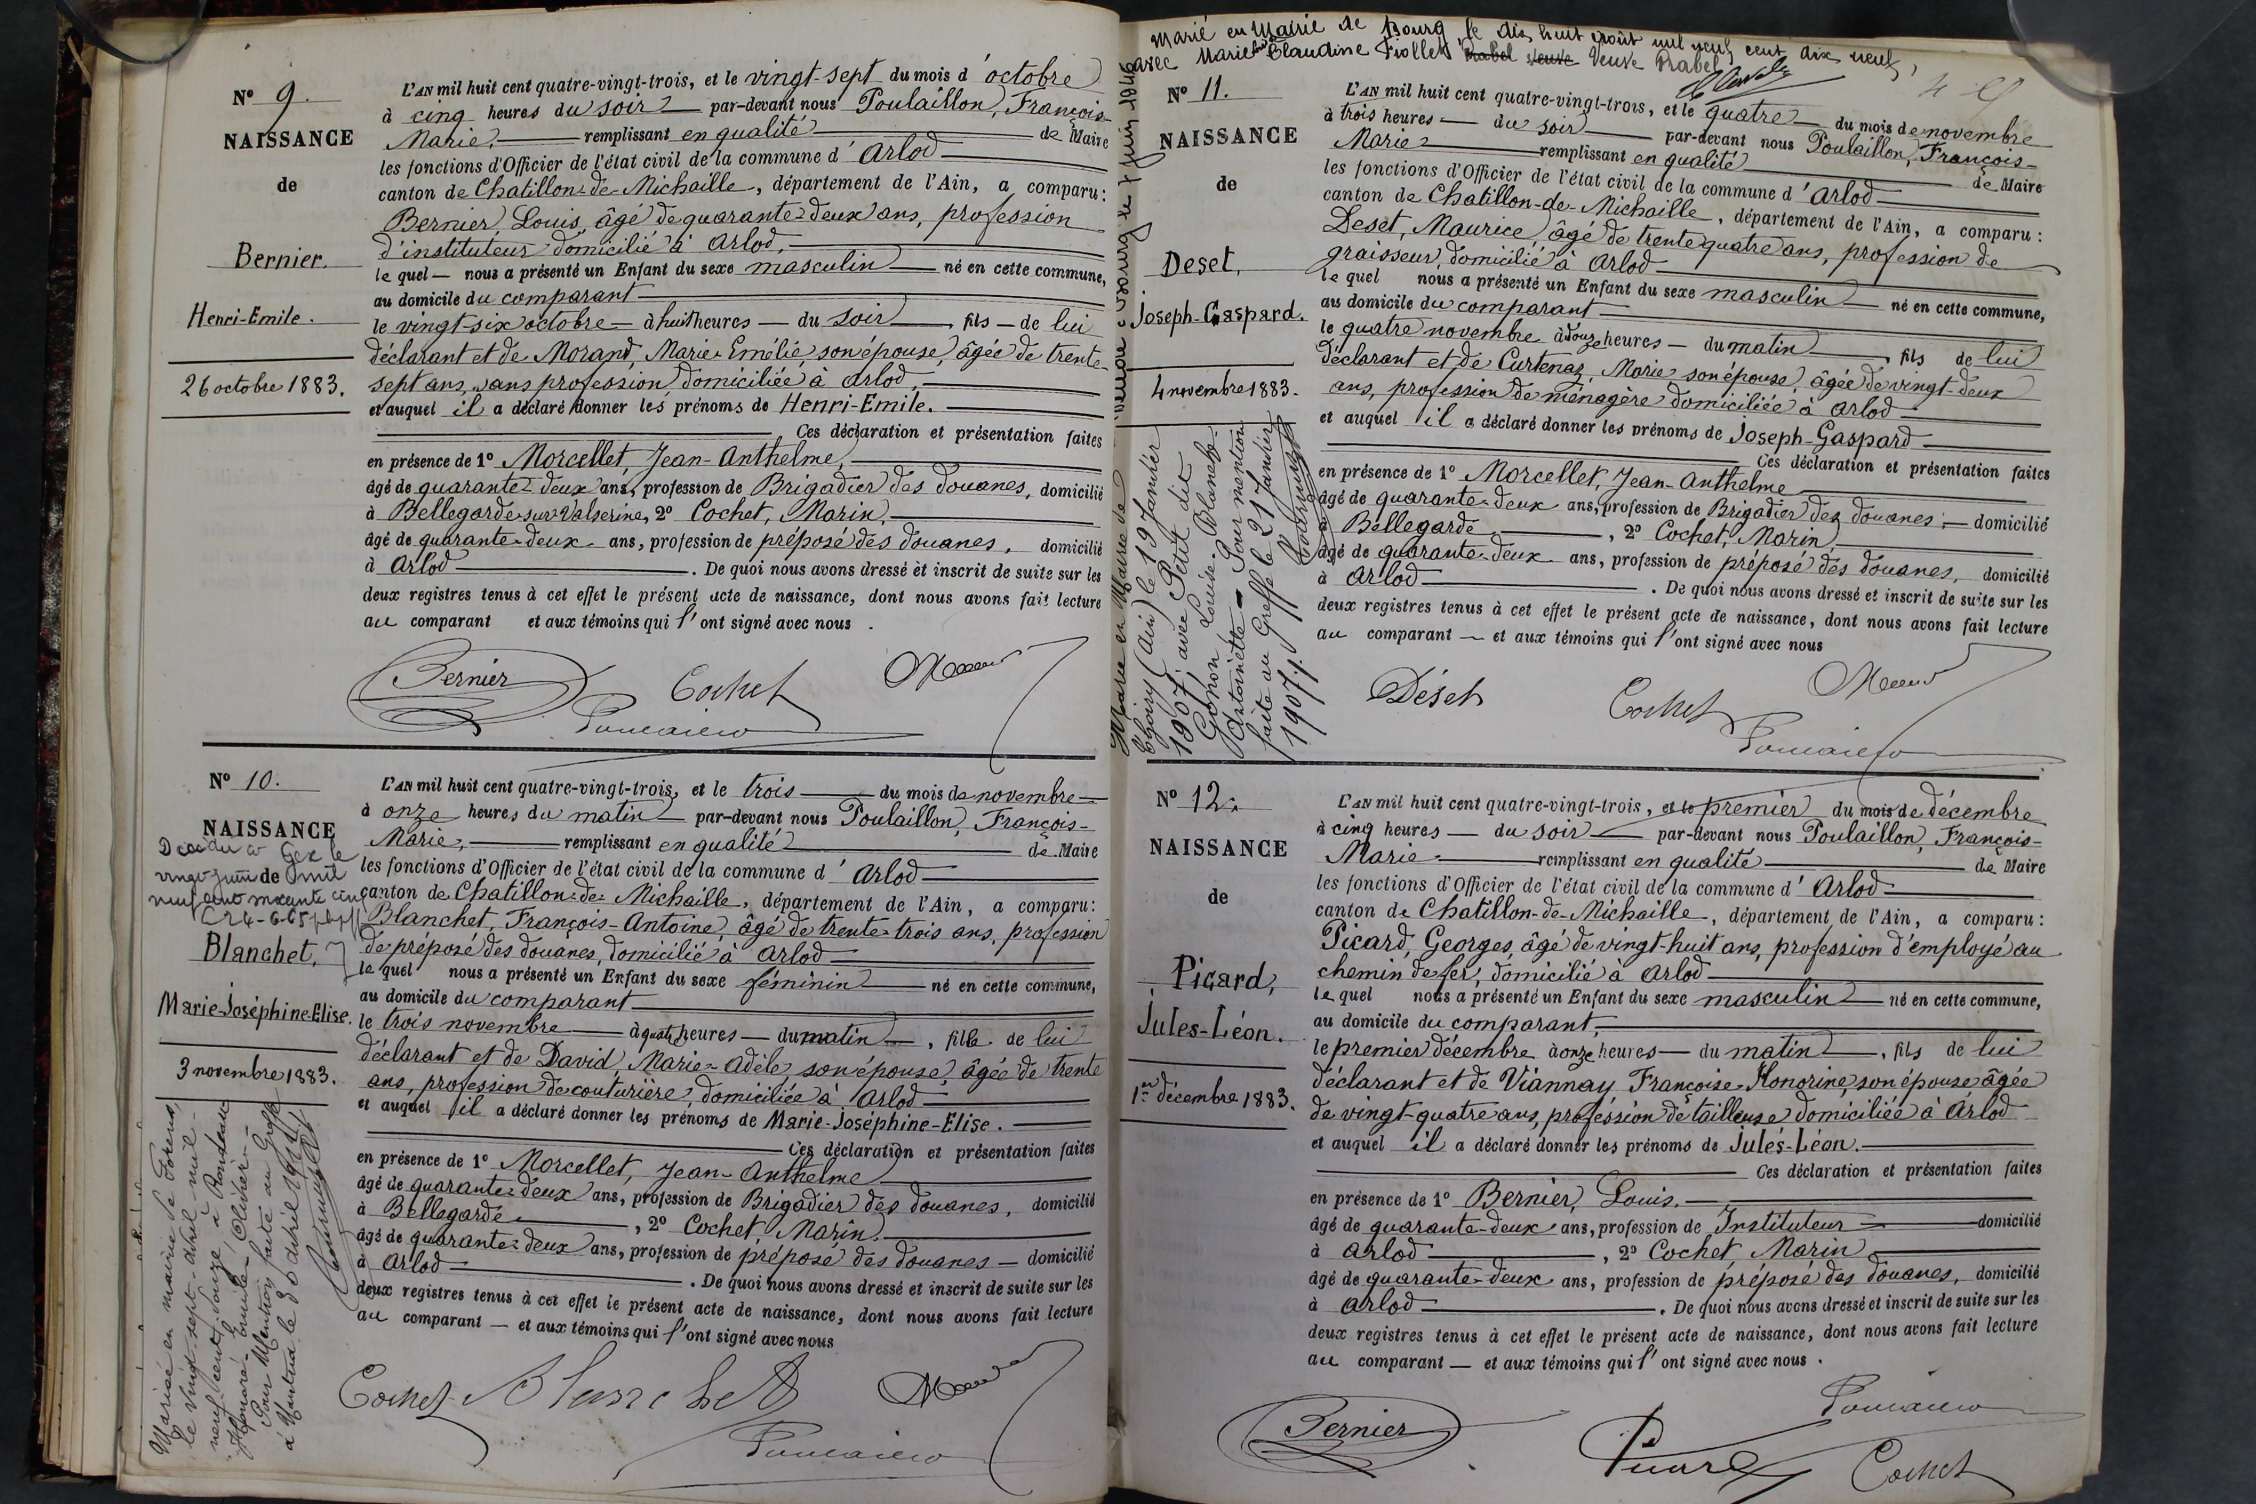 N° 9.
NAISSANCE
de
Bernier.
Henri-Emile.
26 octobre 1883.
L'AN mil huit cent quatre-vingt-trois, et le vingt-sept du mois d'octobre
à cinq heures du soir par-devant nous Poulaillon, François-
Marie, remplissant en qualité de Maire
les fonctions d'Officier de l'état civil de la commune d'Arlod
canton de Chatillon-de-Michaille, département de l'Ain, a comparu:
Bernier Louis, âgé de quarante-deux ans, profession
d'instituteur domicilié à Arlod,
le quel nous a présenté un Enfant du sexe masculin né en cette commune,
au domicile du comparant
le vingt-six octobre à huit heures du soir, fils de lui
déclarant et de Morand, Marie-Emélie son épouse, âgée de trente-
sept ans, sans profession domiciliée à Arlod,
et auquel il a déclaré donner les prénoms de Henri-Emile.
Ces déclaration et présentation faites
en présence de 1° Morcellet, Jean-Anthelme,
âgé de quarante-deux ans, profession de Brigadier des douanes, domicilié
à Bellegarde-sur-Valserine, 2° Cochet, Marin,
âgé de quarante-deux ans, profession de préposé des douanes, domicilié
à Arlod. De quoi nous avons dressé et inscrit de suite sur les
deux registres tenus à cet effet le présent acte de naissance, dont nous avons fait lecture
au comparant et aux témoins qui l'ont signé avec nous.
Bernier Cochet
N° 10.
NAISSANCE
de
Blanchet,
Marie-Joséphine-Elise.
3 novembre 1883.
Décédée à Gex le
vingt juin mil
neuf cent soixante cinq
Mariée en mairie de Forens,
le vingt-sept avril mil-
neuf cent douze à
Honoré Emile
Pour Mention faite au Greffe
à Nantua le 30 avril 1912
L'AN mil huit cent quatre-vingt-trois, et le trois du mois de novembre
à onze heures du matin par-devant nous Poulaillon, François-
Marie, remplissant en qualité de Maire
les fonctions d'Officier de l'état civil de la commune d'Arlod
canton de Chatillon-de-Michaille, département de l'Ain, a comparu:
Blanchet, François-Antoine, âgé de trente-trois ans, profession
de préposé des douanes, domicilié à Arlod
le quel nous a présenté un Enfant du sexe féminin né en cette commune,
au domicile du comparant
le trois novembre à quatre heures du matin, fille de lui
déclarant et de David, Marie-Adèle, son épouse, âgée de trente
ans, profession de couturière, domiciliée à Arlod
et auquel il a déclaré donner les prénoms de Marie-Joséphine-Elise.
Ces déclaration et présentation faites
en présence de 1° Morcellet, Jean-Anthelme
âgé de quarante-deux ans, profession de Brigadier des douanes, domicilié
à Bellegarde, 2° Cochet, Marin,
âgé de quarante-deux ans, profession de préposé des douanes domicilié
à Arlod. De quoi nous avons dressé et inscrit de suite sur les
deux registres tenus à cet effet le présent acte de naissance, dont nous avons fait lecture
au comparant et aux témoins qui l'ont signé avec nous
Cochet Blanchet
Marié en Mairie de Bourg le dix huit août mil neuf cent dix neuf,
avec Marie Claudine Fiollet Veuve Brabel
N° 11.
NAISSANCE
de
Deset,
Joseph-Gaspard.
4 novembre 1883.
Bourg le 7 juin 1946
Marié en Mairie de
Thoiry (Ain) le 19 Janvier
1907, avec Petit dit
Gonon Louise-Blanche-
Antoinette - Pour mention
faite au Greffe le 21 Janvier
1907.
L'AN mil huit cent quatre-vingt-trois, et le quatre du mois de novembre
à trois heures du soir par-devant nous Poulaillon, François-
Marie remplissant en qualité de Maire
les fonctions d'Officier de l'état civil de la commune d'Arlod
canton de Chatillon-de-Michaille, département de l'Ain, a comparu:
Deset, Maurice, âgé de trente quatre ans, profession de
graisseur, domicilié à Arlod
le quel nous a présenté un Enfant du sexe masculin né en cette commune,
au domicile du comparant
le quatre novembre à onze heures du matin, fils de lui
déclarant et de Curtenaz Marie son épouse, âgée de vingt-deux
ans, profession de ménagère domiciliée à Arlod
et auquel il a déclaré donner les prénoms de Joseph-Gaspard
Ces déclaration et présentation faites
en présence de 1° Morcellet, Jean-Anthelme
âgé de quarante-deux ans, profession de Brigadier des douanes, domicilié
Bellegarde, 2° Cochet, Marin,
âgé de quarante-deux ans, profession de préposé des douanes, domicilié
à Arlod. De quoi nous avons dressé et inscrit de suite sur les
deux registres tenus à cet effet le présent acte de naissance, dont nous avons fait lecture
au comparant et aux témoins qui l'ont signé avec nous
Déset Cochet
N° 12.
NAISSANCE
de
Picard,
Jules-Léon.
1er décembre 1883.
L'AN mil huit cent quatre-vingt-trois, et le premier du mois de décembre
à cinq heures du soir par-devant nous Poulaillon, François-
Marie remplissant en qualité de Maire
les fonctions d'Officier de l'état civil de la commune d'Arlod
canton de Chatillon-de-Michaille, département de l'Ain, a comparu:
Picard, Georges, âgé de vingt-huit ans, profession d'employé au
chemin de fer, domicilié à Arlod
le quel nous a présenté un Enfant du sexe masculin né en cette commune,
au domicile du comparant,
le premier décembre à onze heures du matin, fils de lui
déclarant et de Viannay Françoise-Honorine, son épouse âgée
de vingt-quatre ans, profession de tailleuse domiciliée à Arlod
et auquel il a déclaré donner les prénoms de Jules-Léon.
Ces déclaration et présentation faites
en présence de 1° Bernier, Louis,
âgé de quarante-deux ans, profession de Instituteur domicilié
à Arlod, 2° Cochet Marin
âgé de quarante-deux ans, profession de préposé des douanes, domicilié
à Arlod. De quoi nous avons dressé et inscrit de suite sur les
deux registres tenus à cet effet le présent acte de naissance, dont nous avons fait lecture
au comparant et aux témoins qui l'ont signé avec nous.
Bernier Picard Cochet